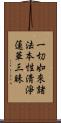 一切如來諸
法本性清淨
蓮華三昧